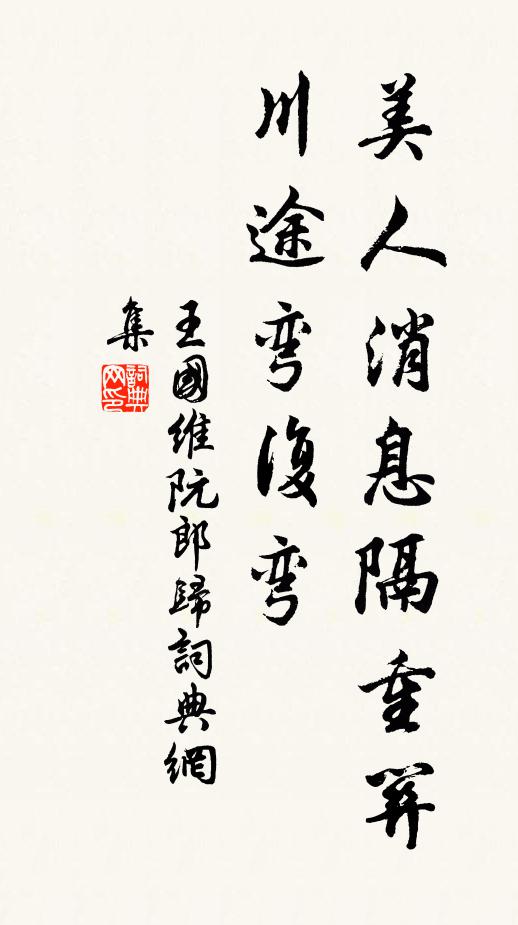 美人消息隔重關
川途弯復弯
王國維阮郎歸詞典網
集
詞典
网印